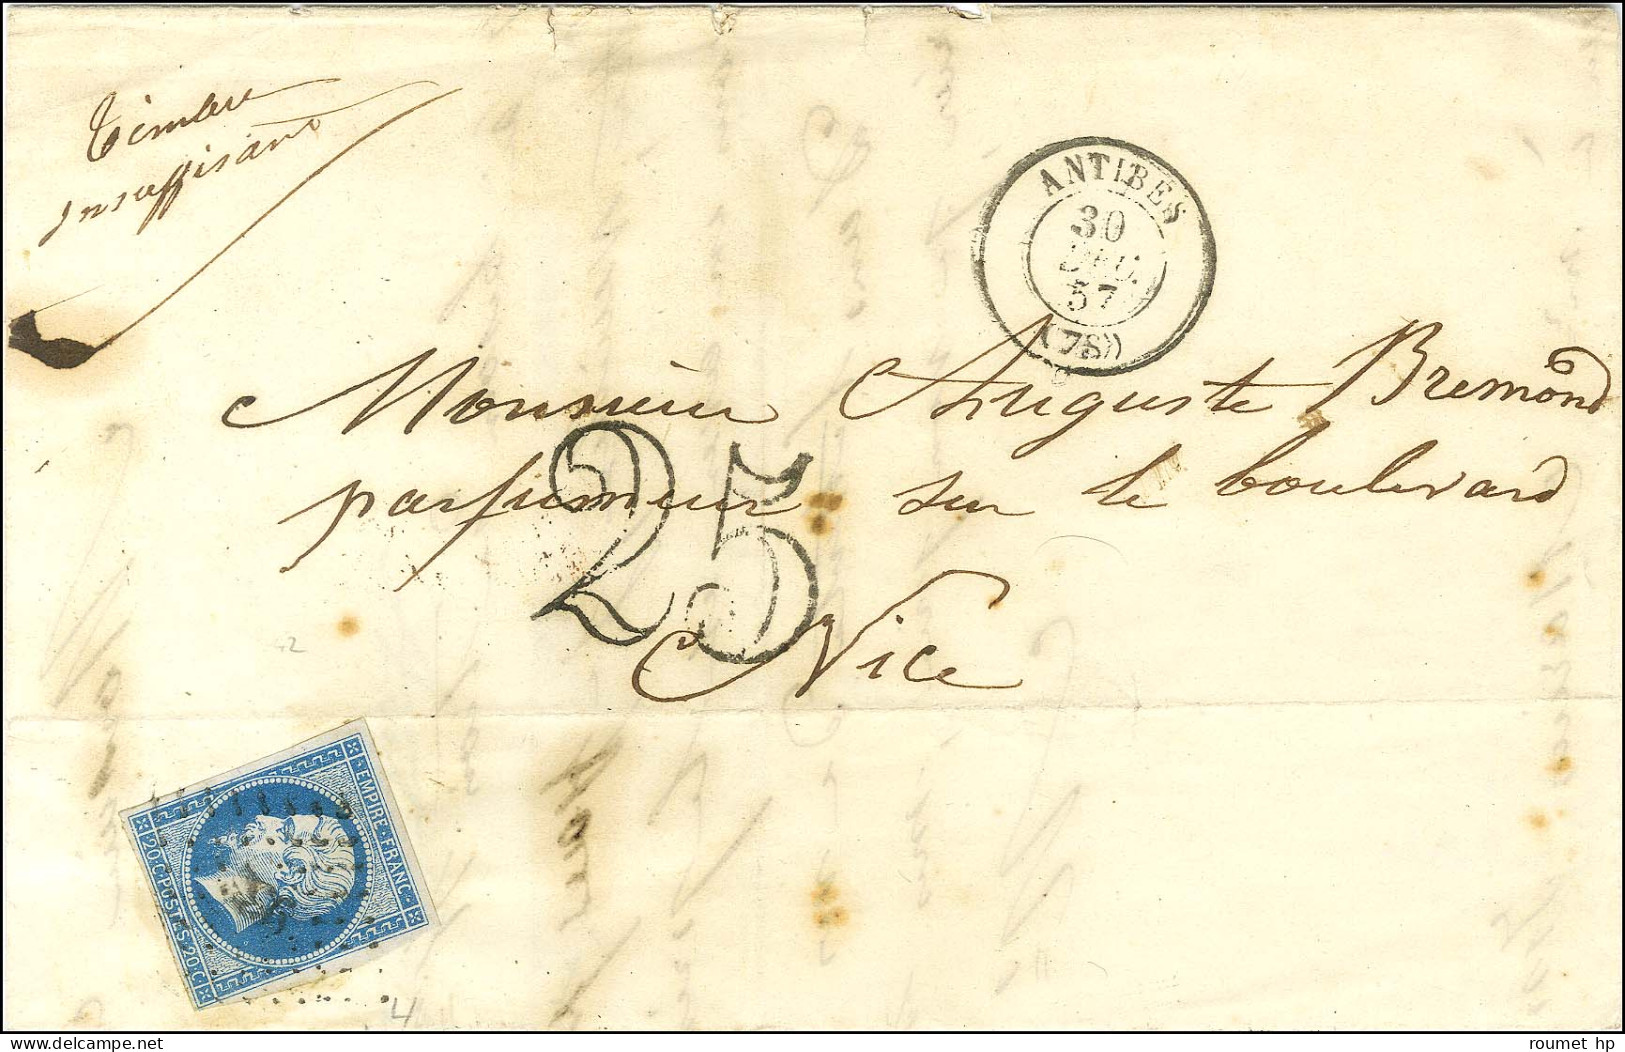 Timbre
insuffisant
ANTIBES
30
DEC.
57
(78)
Monsieur Auguste Bremond
parfumeur sur le boulevard
25
Nice
EMPIRE·FRANC·
·20·C·POSTES·20·C·
delcampe.net
roumet hp